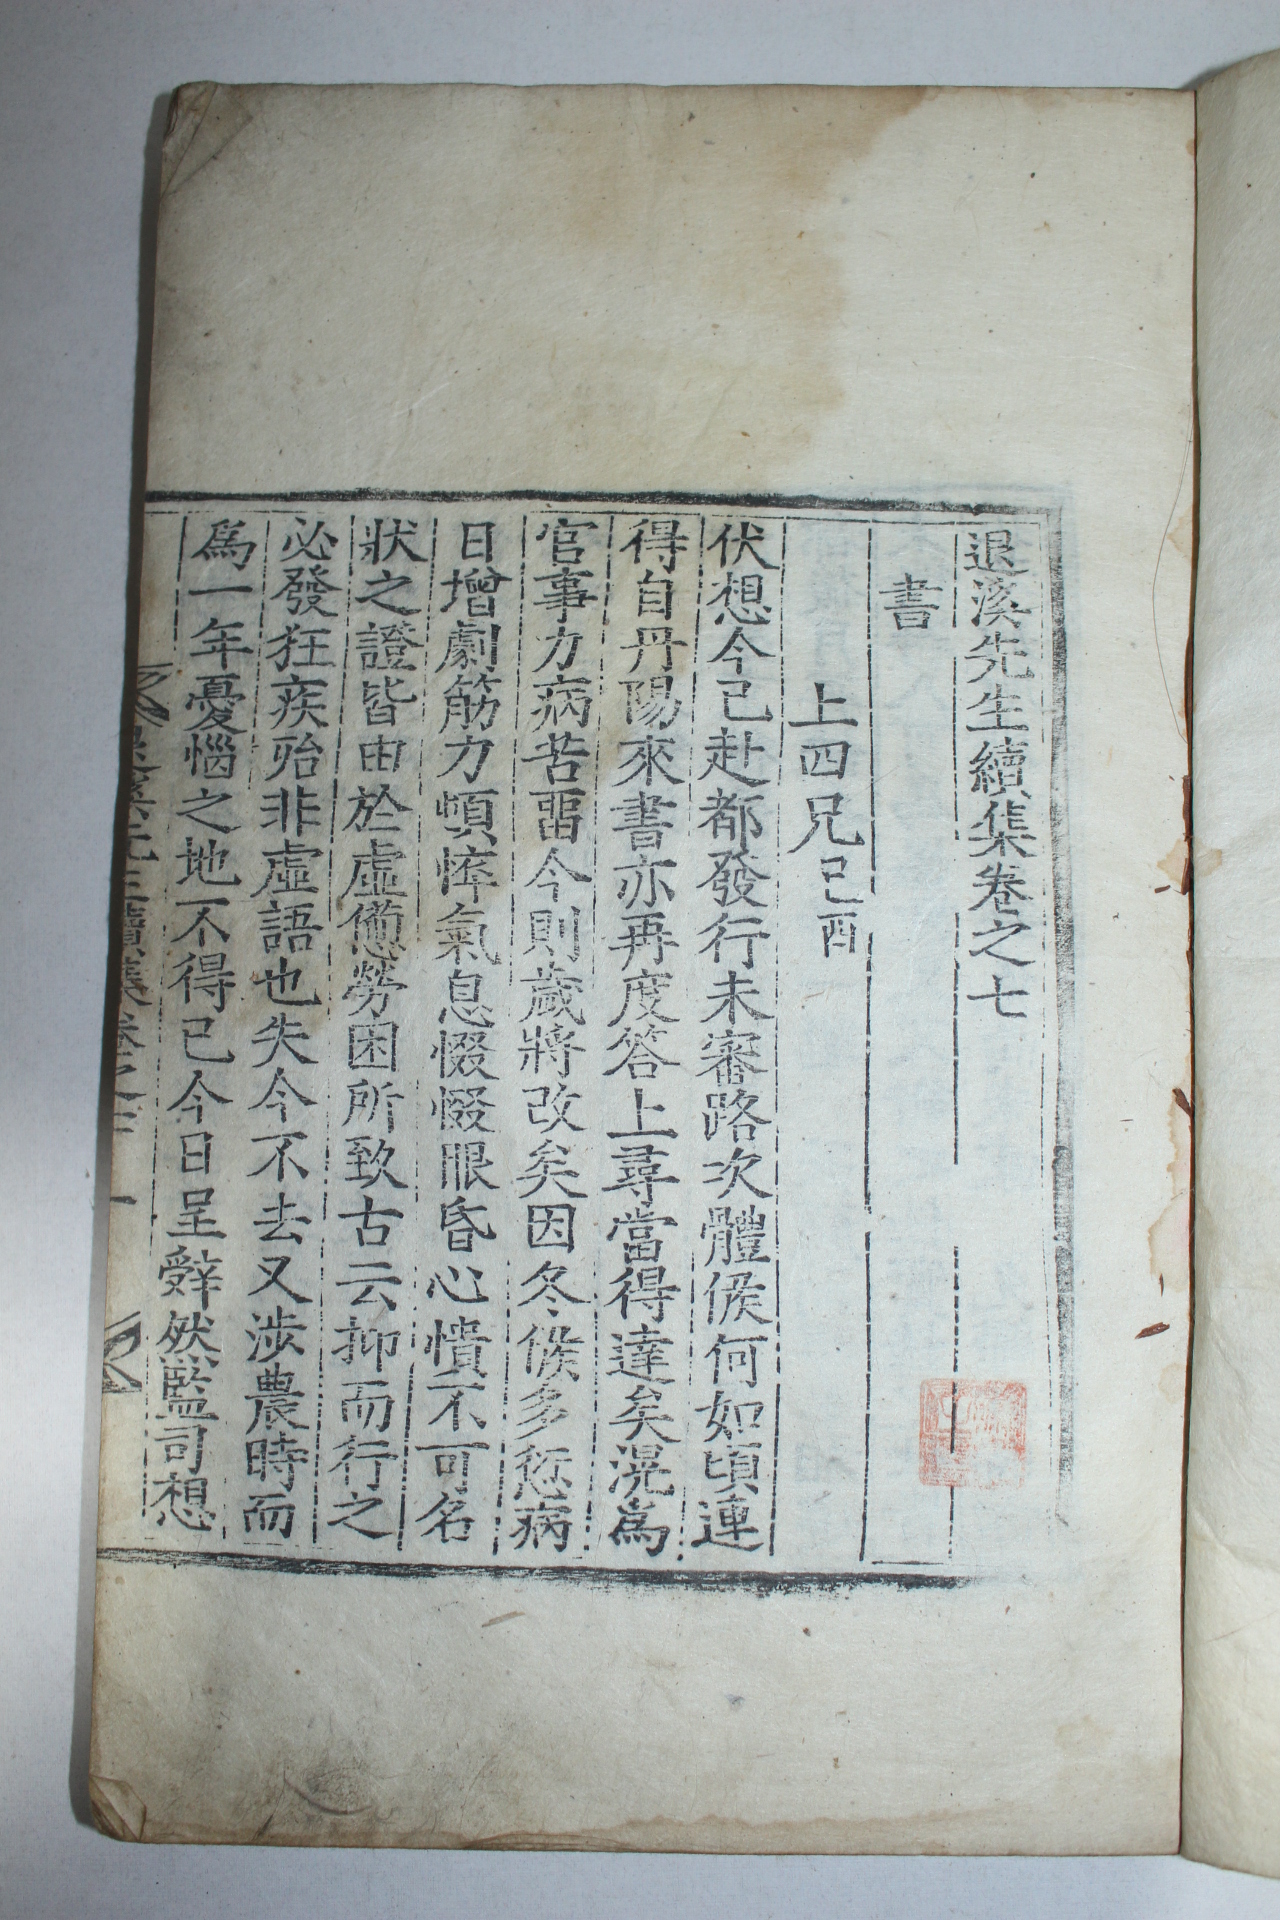 退溪先生續集卷之七
書
上四兄 己酉
伏想今已赴都發行未審路次體候何如頃連
得自丹陽來書亦再度答上尋當得達矣滉爲
官事力病苦畱今則歲將改矣因冬候多愆病
日增劇筋力頓悴氣息惙惙眼昏心憒不可名
狀之證皆由於虛憊勞困所致古云抑而行之
必發狂疾殆非虛語也失今不去又涉農時而
爲一年憂惱之地不得已今日呈辭然監司想